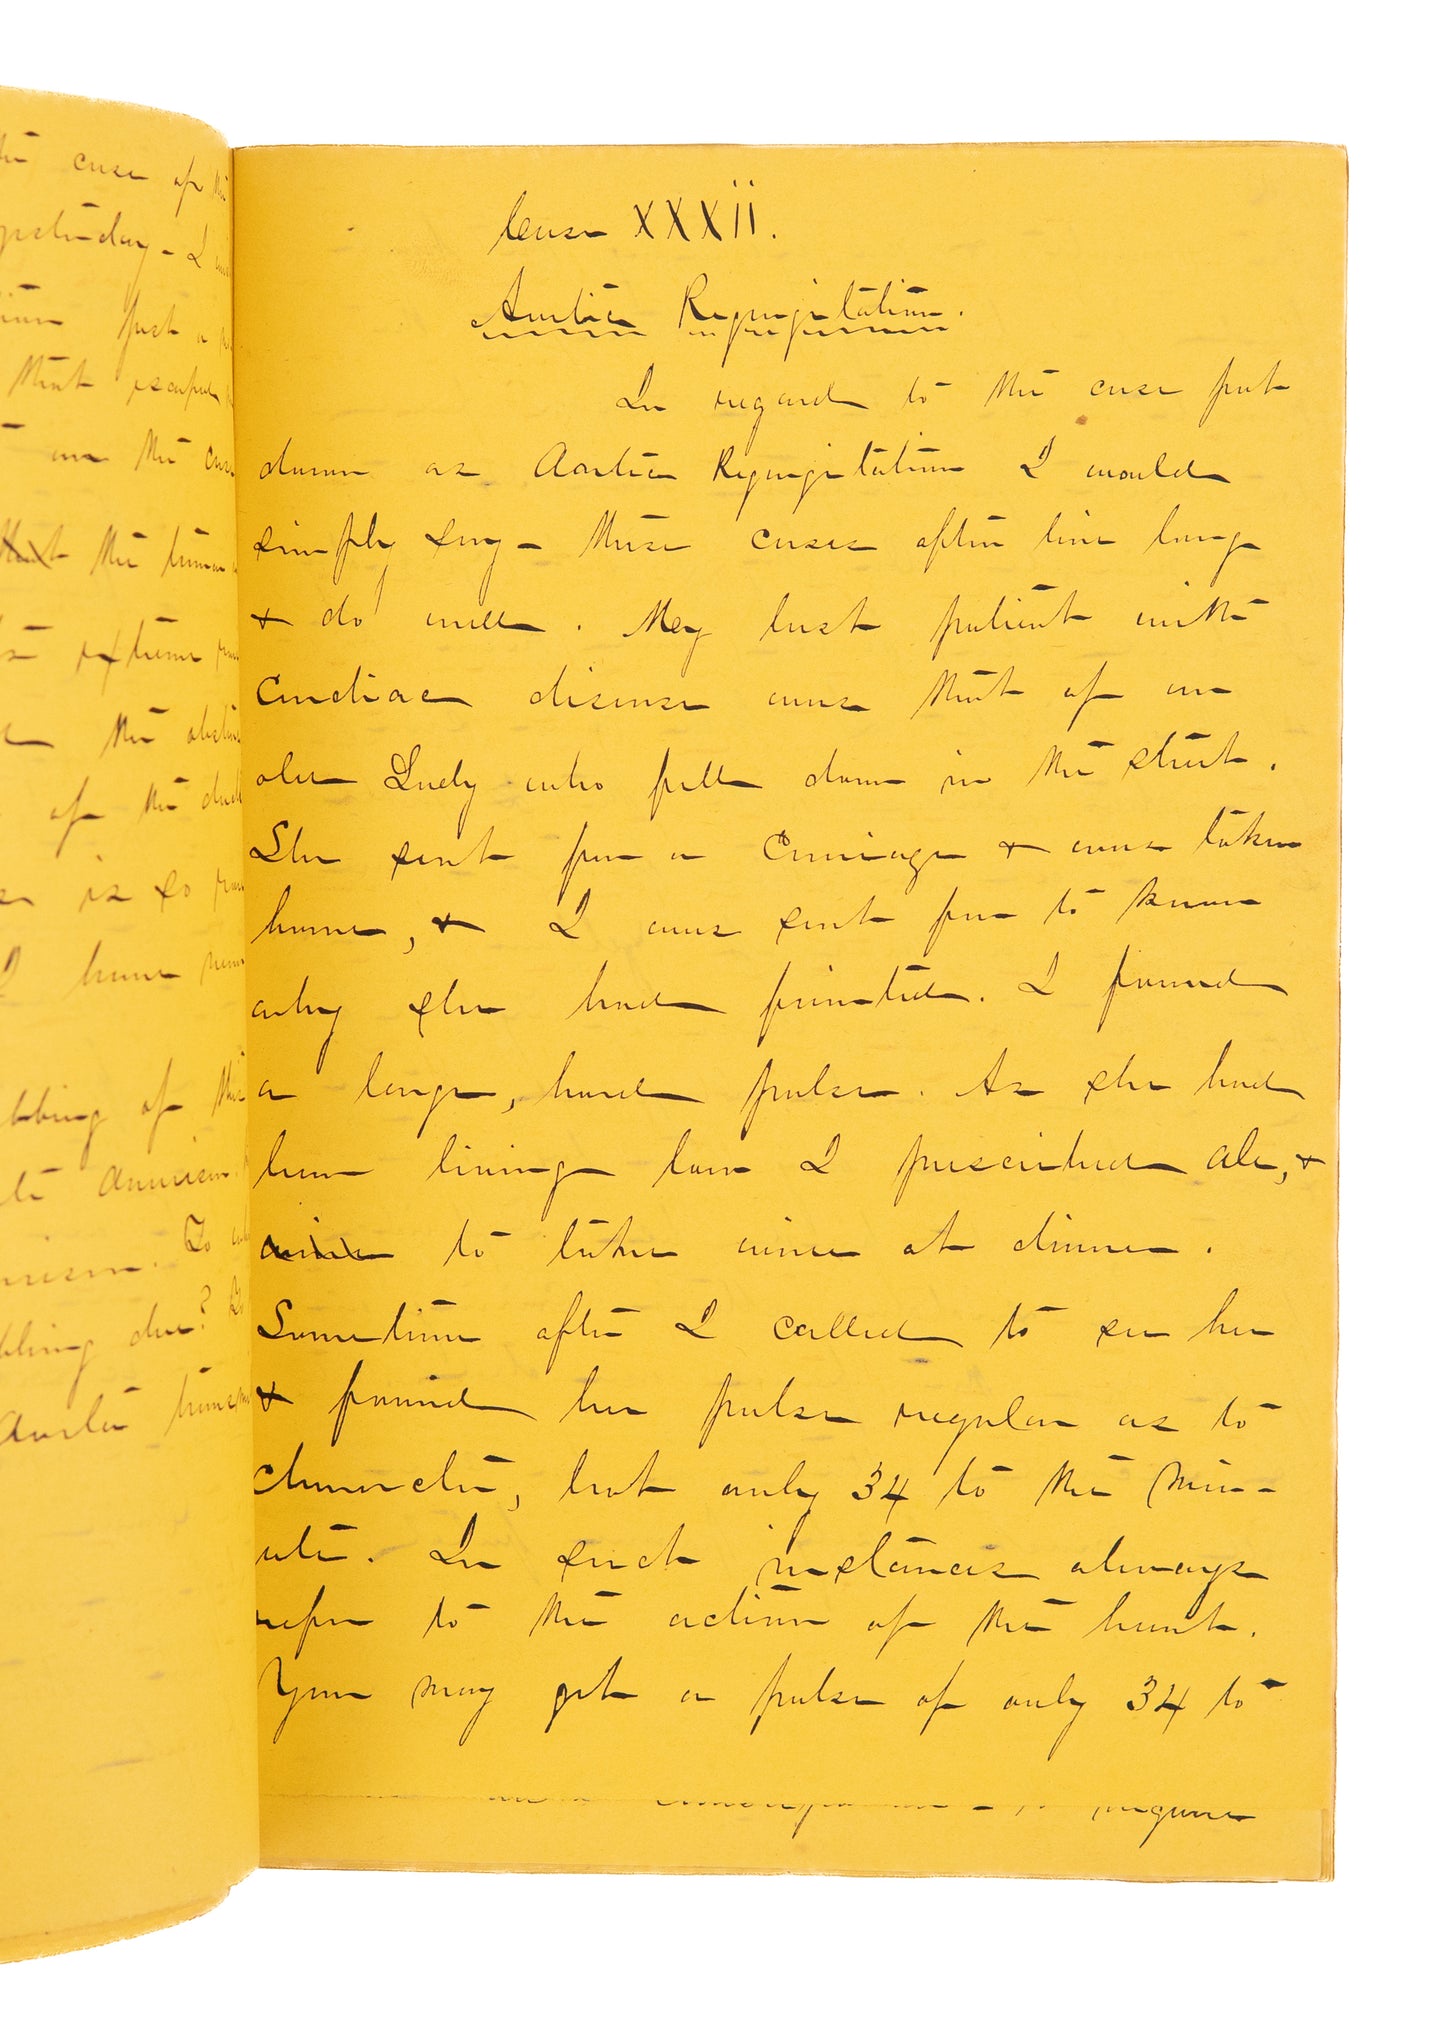 the case of the
yesterday - I
Just a
that escaped
in the case
that the
extreme
the
of the
is so
I have
of this
Aneurism.
To
due?
Aortic
Case XXXii.
Aortic Regurgitation.
In regard to the case put
down as Aortic Regurgitation I would
simply say - these cases often live long
& do well. My last patient with
Cardiac disease was that of an
old Lady who fell down in the street.
She sent for a Carriage & was taken
home, & I was sent for to know
why she had fainted. I found
a large, hard pulse. As she had
been living low I prescribed Ale, &
wine to take wine at dinner.
Sometime after I called to see her
& found her pulse regular as to
character, but only 34 to the min-
ute. In such instances always
refer to the action of the heart.
You may get a pulse of only 34 to
require